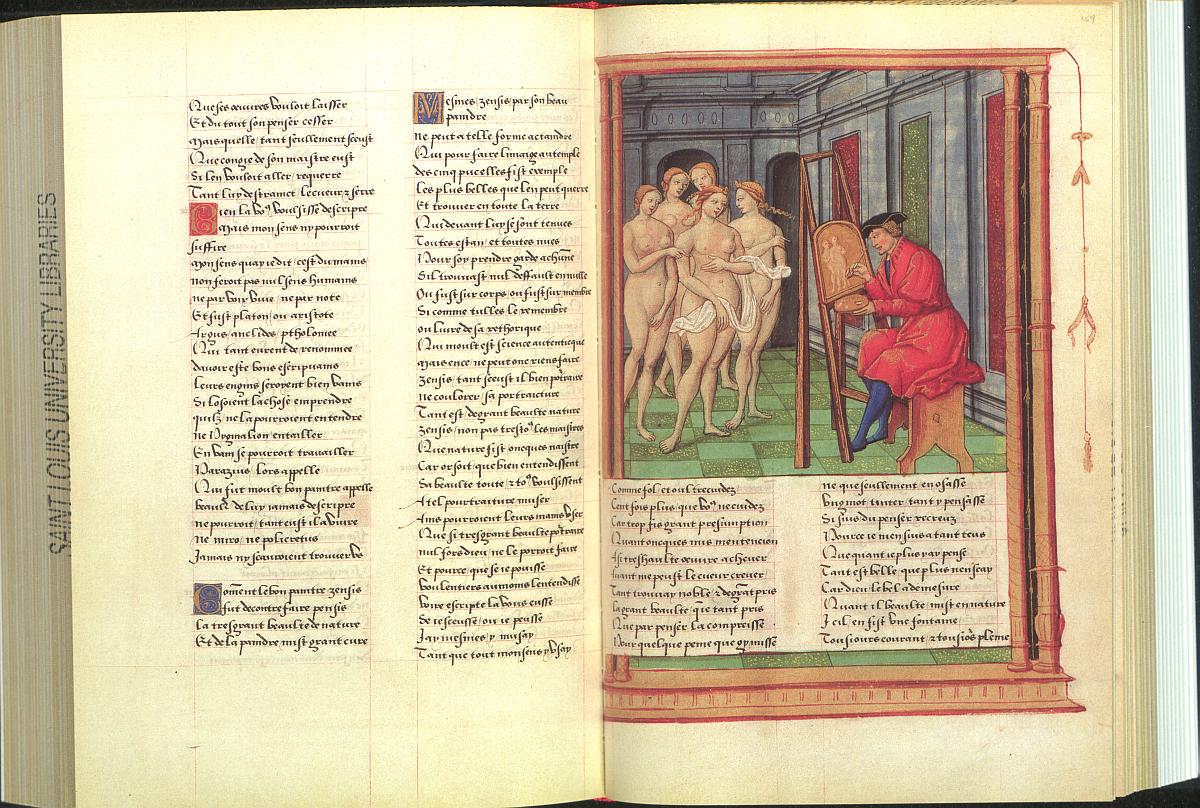 SAINT LOUIS UNIVERSITY LIBRARIES
Que ses oeuvres vousist laisser
Et du tout son penser cesser
Mais quelle tant seullement sceust
Que congie de son maistre eust
Si len vousist aller requerre
Tant luy destraint le cueur z serre
Bien la vo9 voulsisse descripre
Mais mon sens ny pourroit
suffire
Mon sens quay ie dit cest du mains
Non feroit pas nul sens humains
ne par voix vive ne par note
Et fust platon ou aristote
Argus, euclides, ptholomee
Qui tant eurent de renommee
davoir este bons escripuains
Leurs engins seroyent bien vains
Silz osoient la chose emprendre
quilz ne la pourroient entendre
Ne Pygmalion entailler
En vain se pourroit travailler
Parazius lors appelle
Qui fut moult bon paintre appelle
beaulte de luy iamais descripre
ne pourroit tant eust il a vivre
Ne miro ne policretus
Jamais ny scauroient trouver
Coment le bon paintre zensis
fut de contrefaire pensis
La tresgrant beaulte de nature
Et de la paindre mist grant cure
Mesmes zensis par son beau
paindre
ne peut a telle forme actaindre
Qui pour faire limaige au temple
des cinq pucelles fist exemple
Les plus belles que len peut querre
Et trouver en toute la terre
Qui devant luy se sont tenues
Toutes estans et toutes nues
Pour soy prendre garde a chune
Sil trouvast nul deffault en nulle
Ou fust sur corps ou fust sur membre
Si comme tulles le remembre
ou livre de sa rethorique
Qui moult est science autenticque
Mais en ce ne peut onc riens faire
Zensis tant sceust il bien portraire
ne coulorer sa portraicture
Tant est de grant beaulte nature
Zensis non pas trestous les maistres
Que nature fist oncques naistre
Car or soit que bien entendissent
Sa beaulte toute z to9 voulsissent
A tel pourtraiture muser
Ains pourroient leurs mains user
Que si tresgrant beaulte portraire
nul fors dieu ne le porroit faire
Et pource que se ie peusse
Voulentiers au moins lentendisse
Voire escripte la vous eusse
Se ie sceusse ou ie peusse
Jay mesmes y musay
Tant que tout mon sens y vsay
159
Comme fol et oultrecuidez
Cent fois plus que vo9 ne cuidez
Car trop fis grant presumption
Quant oncques mis mentencion
A si treshaulte oeuvre achever
Avant me peust le cueur crever
Tant trouvay noble z de grant pris
La grant beaulte que tant pris
Que par penser la compreisse
Pour quelque peine que gy meisse
Ne que seullement en osasse
Ung mot tinter tant y pensasse
Si suis du penser recreuz
Pour ce ie men suis a tant teuz
Que quant ie plus y ay pense
Tant est belle que plus nen scay
Car dieu le bel a demesure
Quant il beaulte mist en nature
Il en fist une fontaine
Tousiours courant z tousio9s pleine